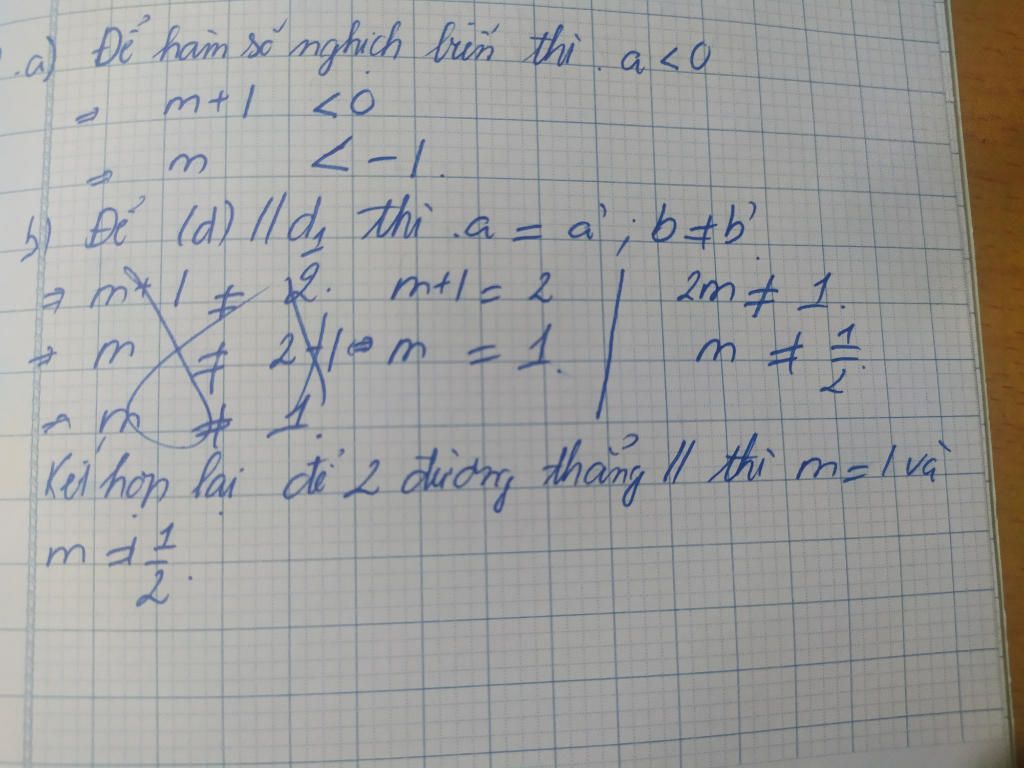 a) Để hàm số nghịch biến thì a < 0
⇒ m + 1 < 0
⇒ m < -1.
b) Để (d) // d₁ thì a = a' ; b ≠ b'
⇒ m + 1 ≠ 2. m+1 = 2 | 2m ≠ 1.
⇒ m ≠ 2-1 ⇒ m = 1. | m ≠ 1/2.
⇒ m ≠ 1.
Kết hợp lại để 2 đường thẳng // thì m = 1 và
m ≠ 1/2.